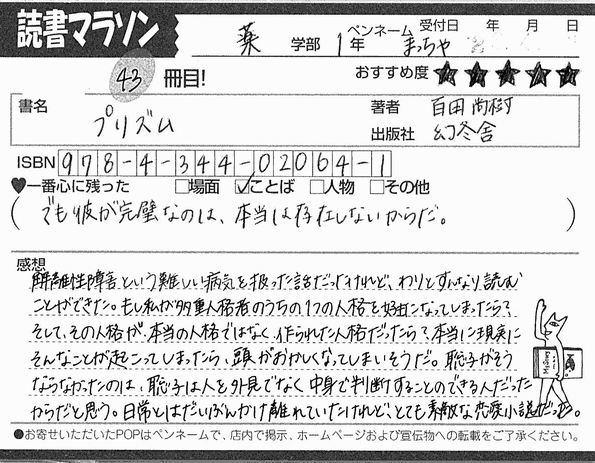 読書マラソン
薬 学部 1年 ペンネーム まっちゃ 受付日 年 月 日
43 冊目! おすすめ度 ★★★★★
書名 プリズム
著者 百田尚樹
出版社 幻冬舎
ISBN 978-4-344-02064-1
♥一番心に残った □場面 ☑ことば □人物 □その他
(でも彼が完璧なのは、本当は存在しないからだ。)
感想
解離性障害という難しい病気を扱った話だったけれど、わりとすんなり読む
ことができた。もし私が多重人格者のうちの1つの人格を好きになってしまったら?
そして、その人格が、本当の人格ではなく、作られた人格だったら?、本当に現実に
そんなことが起こってしまったら、頭がおかしくなってしまいそうだ。聡子がそう
ならなかったのは、聡子は人を外見でなく中身で判断することのできる人だった
からだと思う。日常とはだいぶんかけ離れていたけれど、とても素敵な恋愛小説だった。
●お寄せいただいたPOPはペンネームで、店内で掲示、ホームページおよび宣伝物への転載をご了承ください。